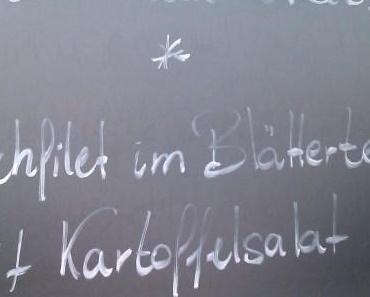 *
chfilet im Blätterte
t Kartoffelsalat